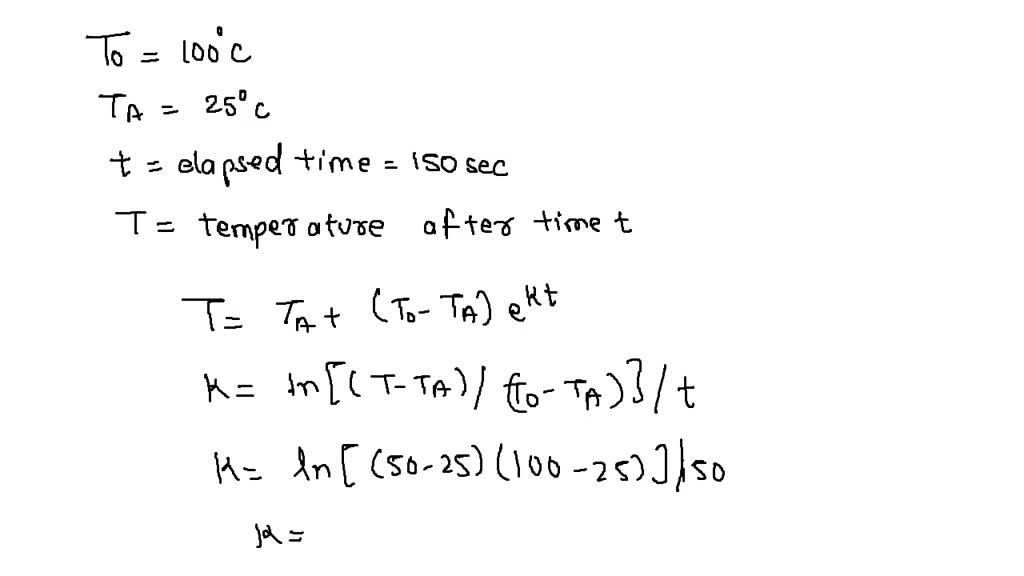 T₀ = 100°C
T_A = 25°C
t = elapsed time = 150 sec
T = temperature after time t
T = T_A + (T₀ - T_A) e^{kt}
K = ln[(T - T_A) / (T₀ - T_A)}] / t
K = ln[(50-25)(100-25)]/150
K =